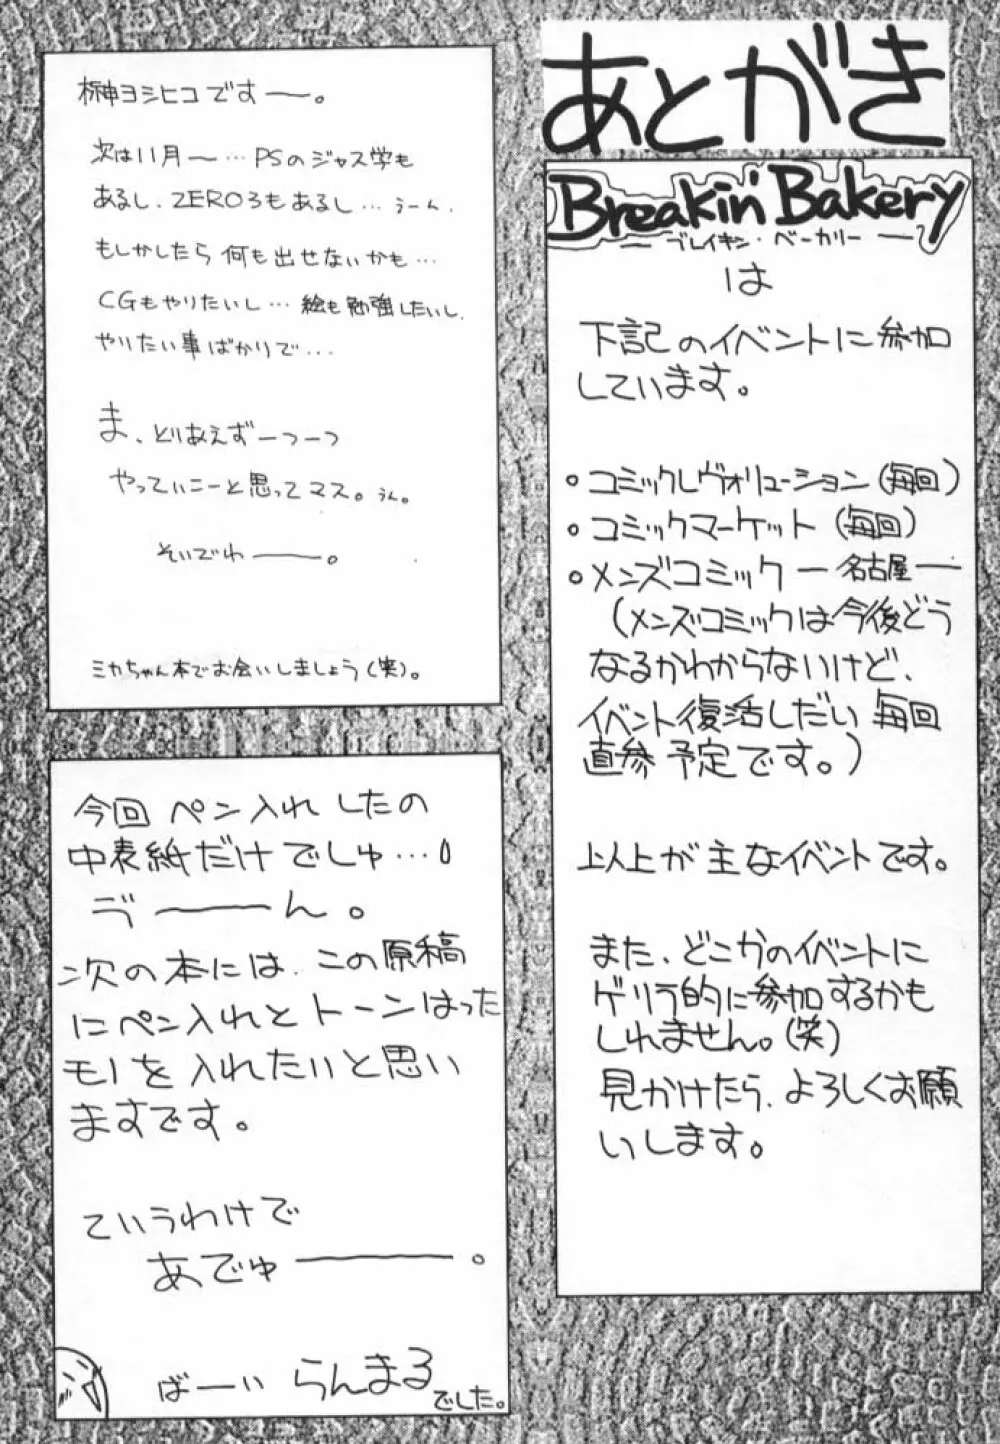 あとがき
Breakin' Bakery
ー ブレイキン・ベーカリー ー
は
下記のイベントに参加
しています。
・コミックレヴォリューション(毎回)
・コミックマーケット(毎回)
・メンズコミック ー名古屋ー
(メンズコミックは今後どう
なるかわからないけど、
イベント復活しだい毎回
直参予定です。)
以上が主なイベントです。
また、どこかのイベントに
ゲリラ的に参加するかも
しれません。(笑)
見かけたら、よろしくお願
いします。
榊ヨシヒコですー。
次は11月〜…PSのジャス学も
あるし、ZERO3もあるし…うーん、
もしかしたら何も出せないかも…
CGもやりたいし…絵も勉強したいし、
やりたい事ばかりで…
ま、とりあえずーつーつ
やっていこーと思ってマス。うん。
そいでわー。
ミカちゃん本でお会いしましょう(笑)。
今回ペン入れしたの
中表紙だけでしゅ…
ん。
次の本には、この原稿
にペン入れとトーンはった
モノを入れたいと思い
ますです。
ていうわけで
あでゅー。
ばーい らんまるでした。